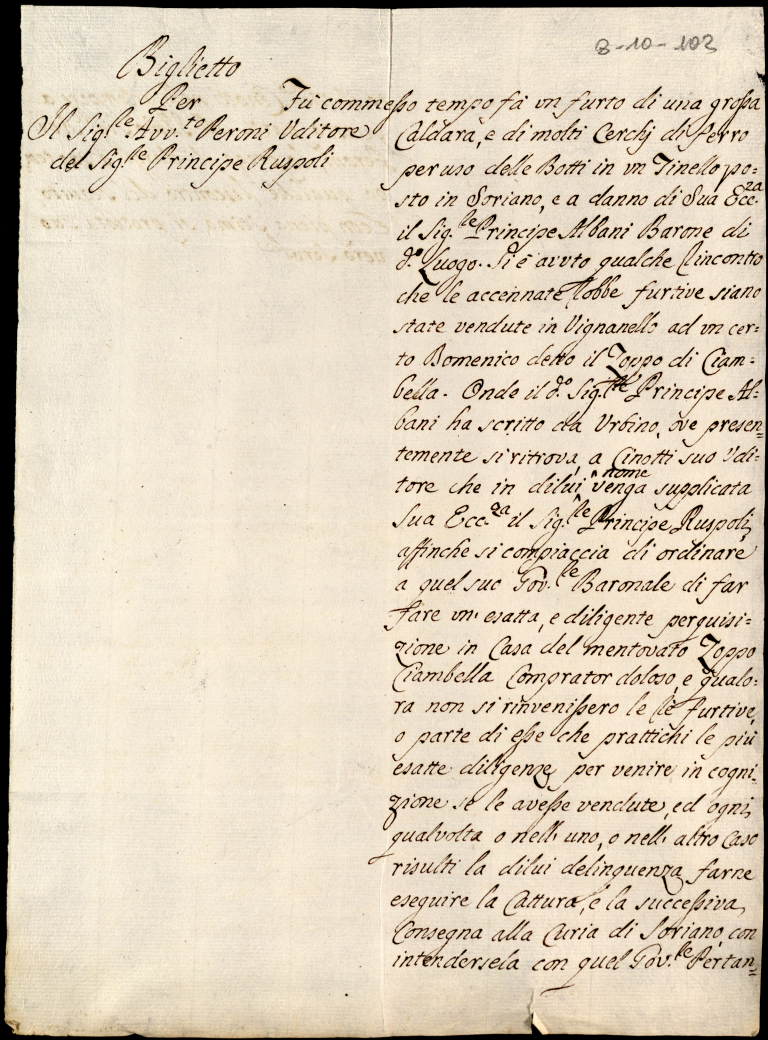 8-10-103
Biglietto
Per
Il Sig.le Avv.to Peroni Uditore
del Sig.le Principe Ruspoli
Fù commesso tempo fà un furto di una grossa
Caldara, e di molti Cerchj di ferro
per uso delle Botti in un Tinello po=
sto in Soriano, e a danno di Sua Ecc.za
il Sig.le Principe Albani Barone di
d.o Luogo. Si è avuto qualche Rincontro
che le accennate Robbe furtive siano
state vendute in Vignanello ad un cer=
to Domenico detto il Zoppo di Ciam=
bella. Onde il d.o Sig.le Principe Al=
bani ha scritto da Urbino, ove presen=
temente si ritrova, a Cinotti suo Udi=
tore che in dilui nome venga supplicata
Sua Ecc.za il Sig.le Principe Ruspoli,
affinche si compiaccia di ordinare
a quel suo Gov.le Baronale di far
fare un' esatta, e diligente perquisi=
zione in Casa del mentovato Zoppo
Ciambella Comprator doloso, e qualo=
ra non si rinvenissero le Re furtive,
o parte di esse che prattichi le più
esatte diligenze per venire in cogni=
zione se le avesse vendute, ed ogni
qualvolta o nell' uno, o nell' altro Caso
risulti la dilui delinquenza farne
eseguire la Cattura, e la successiva
Consegna alla Curia di Soriano, con
intendersela con quel Gov.le Pertan=